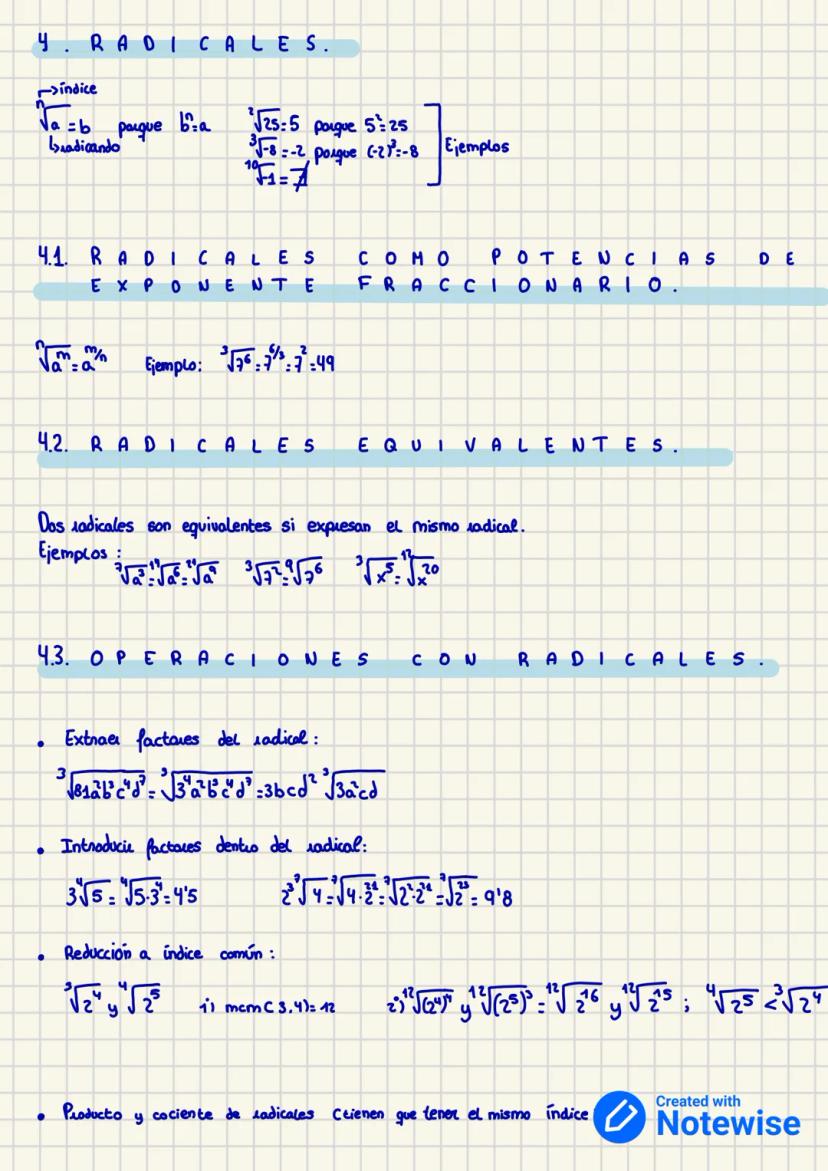 4. RADICALES.
índice
ⁿ√a = b porque bⁿ=a ²√25=5 porque 5²=25
radicando ³√-8 = -2 porque (-2)³=-8 Ejemplos
¹⁰√-1 = ∄
4.1. RADICALES COMO POTENCIAS DE
EXPONENTE FRACCIONARIO.
ⁿ√aᵐ = a^m/n Ejemplo: ³√7⁶ = 7^6/3 = 7² = 49
4.2. RADICALES EQUIVALENTES.
Dos radicales son equivalentes si expresan el mismo radical.
Ejemplos :
⁷√a³ = ¹⁴√a⁶ = ²¹√a⁹ ³√7² = ⁹√7⁶ ³√x⁵ = ¹²√x²⁰
4.3. OPERACIONES CON RADICALES.
• Extraer factores del radical :
³√81a²b³c⁴d⁷ = ³√3⁴a²b³c⁴d⁷ = 3bcd² ³√3a²cd
• Introducir factores dentro del radical:
3⁴√5 = ⁴√5·3⁴ = 4'5 2³ ⁷√4 = ⁷√4·2²¹ = ⁷√2²·2²¹ = ⁷√2²³ = 9'8
• Reducción a índice común :
³√2⁴ y ⁴√2⁵ 1) mcm(3,4)= 12 2) ¹²√(2⁴)⁴ y ¹²√(2⁵)³ = ¹²√2¹⁶ y ¹²√2¹⁵ ; ⁴√2⁵ < ³√2⁴
• Producto y cociente de radicales (tienen que tener el mismo índice
Created with
Notewise